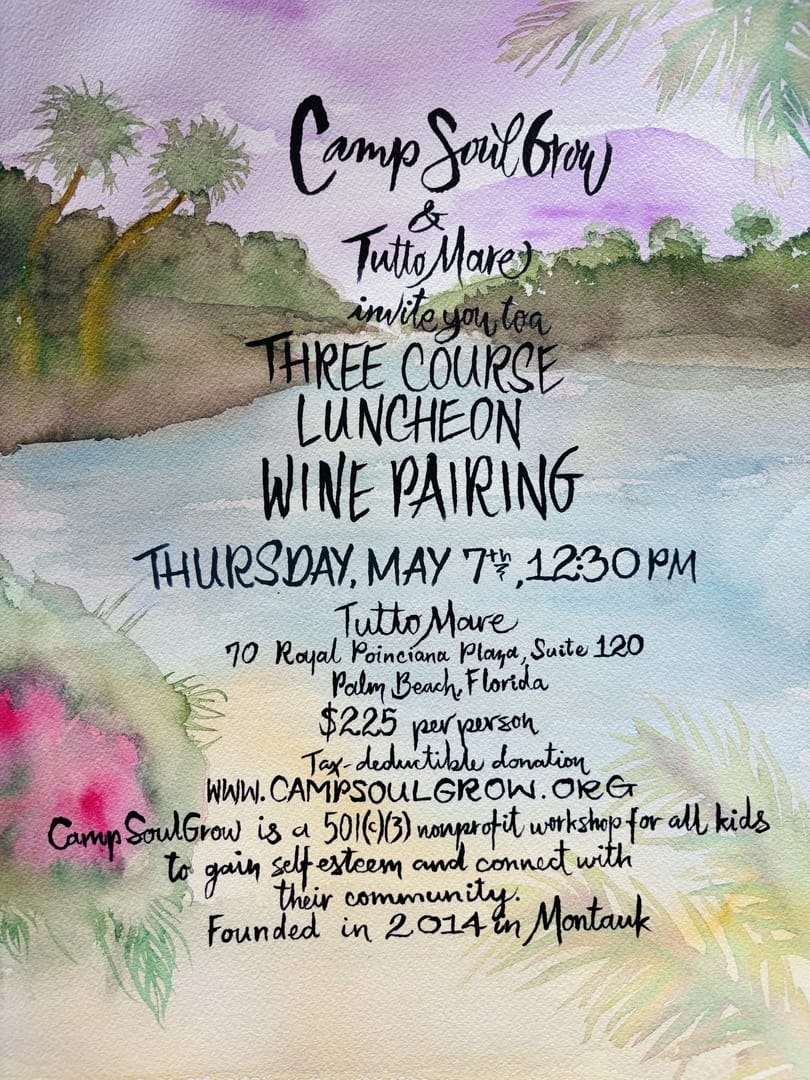 Camp SoulGrow
&
Tutto Mare
invite you to a
THREE COURSE
LUNCHEON
WINE PAIRING
THURSDAY, MAY 7th, 12:30 PM
Tutto Mare
70 Royal Poinciana Plaza, Suite 120
Palm Beach, Florida
$225 per person
Tax-deductible donation
WWW.CAMPSOULGROW.ORG
Camp SoulGrow is a 501(c)(3) nonprofit workshop for all kids
to gain self esteem and connect with
their community.
Founded in 2014 in Montauk